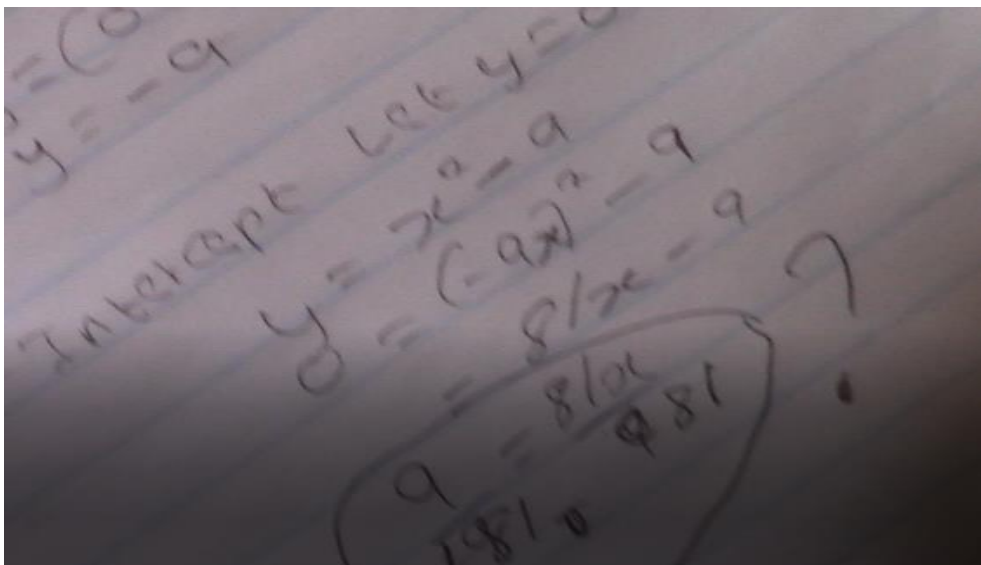 = (0
y = -9
Intercept Let y = 0
y = x² - 9
= (-9x)² - 9
= 81x - 9 ?
9 = 81x
81 81